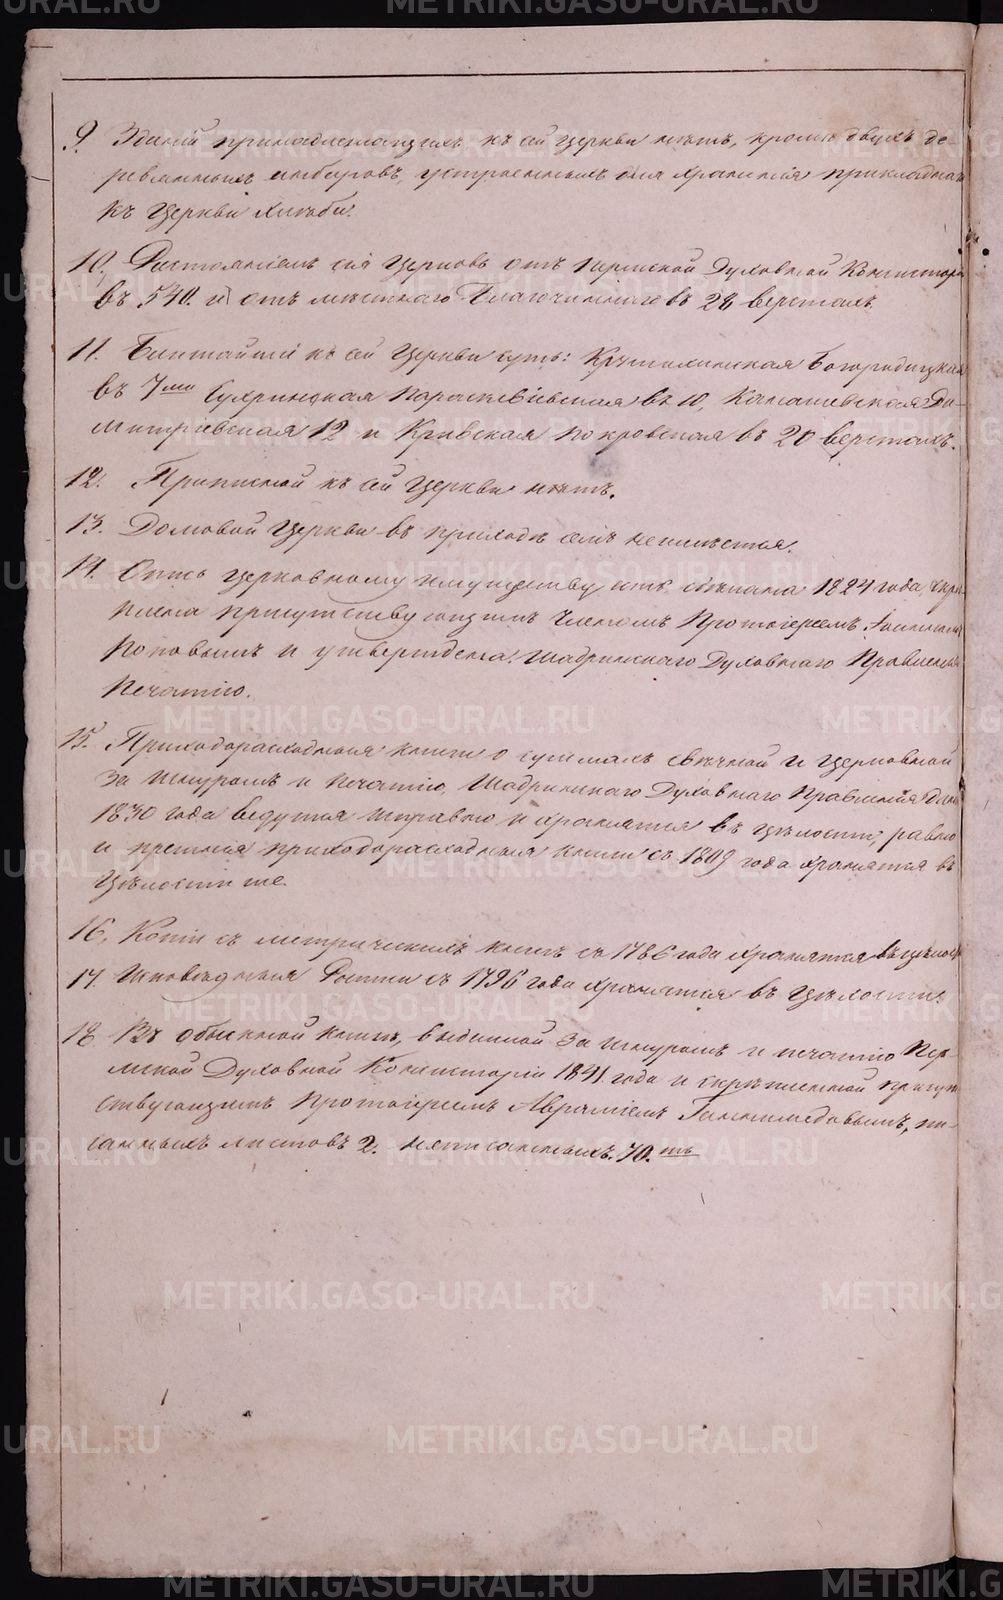 9. Зданій принадлежащихъ къ сей церкви нѣтъ, кромѣ двухъ де-
ревянныхъ анбаровъ, устроенныхъ для храненія прикладнаго
къ церкви хлѣба.
10. Разстояніемъ сія церковь отъ Пермской Духовной Консисторіи
въ 540. и отъ мѣстнаго Благочиннаго въ 28 верстахъ.
11. Ближайшія къ сей церкви суть: Крутихинская Богородицкая
въ 7ми Сухринская Параскевіевская въ 10, Каношевская Ди-
митріевская 12 и Кривская Покровская въ 20 верстахъ.
12. Приписной къ сей церкви нѣтъ.
13. Домовой церкви въ приходѣ семъ неимѣется.
14. Опись церковному имуществу сдѣлана 1824 года, скрѣ-
плена присутствующимъ Членомъ Протоіереемъ
Поповымъ и утверждена Шадринскаго Духовнаго Правленія
печатію.
15. Приходорасходныя книги о суммахъ свѣчной и церковной
за шнуромъ и печатію Шадринскаго Духовнаго Правленія данныя
1830 года ведутся исправно и хранятся въ цѣлости, равно
и прежнія приходорасходныя книги съ 1809 года хранятся въ
цѣлости же.
16. Копіи съ метрическихъ книгъ съ 1786 года хранятся въ цѣлости
17. Исповѣдныя Росписи съ 1796 года хранятся въ цѣлости.
18. Въ обыскной книгѣ, выданной за шнуромъ и печатію Пер-
мской Духовной Консисторіи 1841. года и скрѣпленной присут-
ствующимъ Протоіереемъ Авраміемъ Ганимедовымъ, пи-
санныхъ листовъ 2. неписанныхъ. 70.ть
METRIKI.GASO-URAL.RU